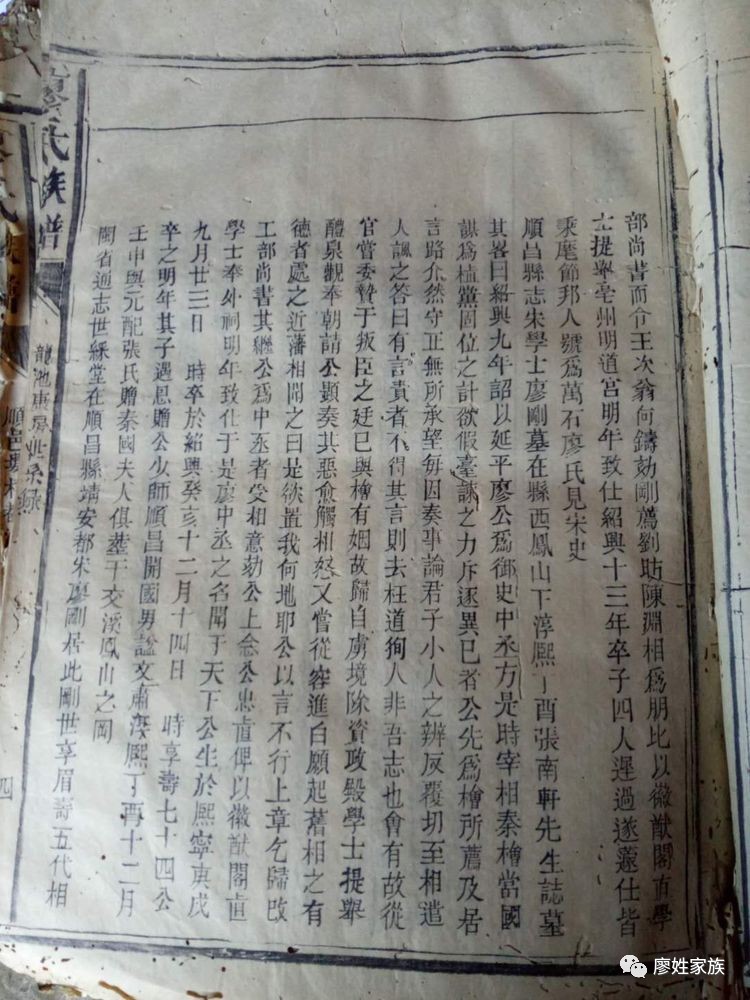 部尚書而令王次翁何鑄劾剛薦劉昉陳淵相爲朋比以徽猷閣直學
士提舉亳州明道宮明年致仕紹興十三年卒子四人遲過遂蘧仕皆
秉麾節邦人號爲萬石廖氏見宋史
順昌縣志宋學士廖剛墓在縣西鳳山下淳熙丁酉張南軒先生誌墓
其畧曰紹興九年詔以延平廖公爲御史中丞方是時宰相秦檜當國
謀爲植黨固位之計欲假臺諫之力斥逐異已者公先爲檜所薦及居
言路介然守正無所承望每因奏事論君子小人之辨反覆切至相遣
人諷之答曰有言責者不得其言則去枉道徇人非吾志也會有故從
官嘗委贄于叛臣之廷已與檜有姻故歸自虜境除資政殿學士提舉
醴泉觀奉朝請公顯奏其惡愈觸相怒又嘗從容進白願起舊相之有
德者處之近藩相聞之曰是欲置我何地耶公以言不行上章乞歸改
工部尚書其繼公爲中丞者受相意劾公上念公忠直俾以徽猷閣直
學士奉外祠明年致仕于是廖中丞之名聞于天下公生於熙寧庚戌
九月廿三日 時卒於紹興癸亥十二月十四日 時享壽七十四公
卒之明年其子遇恩贈公少師順昌開國男諡文肅淳熙丁酉十二月
壬申與元配張氏贈秦國夫人俱塟于交溪鳳山之岡
閩省通志世綵堂在順昌縣靖安都宋廖剛居此剛世享眉壽五代相
廖氏族譜
四
廖姓家族